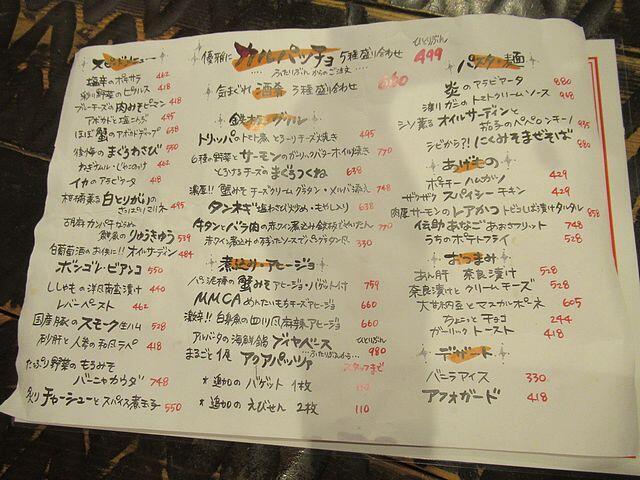 スピードメニュー
塩辛のポテサラ 462
彩り野菜のピクルス 418
ブルーチーズの肉みそピーマン 418
アボカドと塩こんぶ 495
ほぼ蟹のアボカドディップ 638
後悔のまぐろわさび 550
わさびナムル・じゃこのっけ 462
イカのアラビアータ 418
柑橘薫る白とりがいの
さっぱりマリネ 495
胡麻カンパチならぬ
鮮魚のりゅうきゅう 539
白葡萄酒のお供に!!オイルサーディン 484
ボンゴレ・ビアンコ 550
ししゃもの洋風南蛮漬け 440
レバーペースト 462
国産豚のスモーク生ハム 528
砂肝と人参の和風ラペ 418
たっぷり野菜のもろみそ
バーニャカウダ 748
炙りチャーシューとスパイス煮玉子 550
優雅にカルパッチョ 5種盛り合わせ ひとりぶん 499
…ふたりぶんからのご注文…
気まぐれ酒肴 3種盛り合わせ 660
鉄板・グリル
トリッパのトマト煮 とろーりチーズ焼き 495
6種の野菜とサーモンのガーリックバターホイル焼き 770
とろけるチーズのまぐろつくね 638
濃厚!!蟹みそチーズクリームグラタン・メルバ添え 748
タンネギ 塩わさび炒め・もやし入り 638
牛タンとバラ肉の赤ワイン煮込み 鉄板でぜいたん 770
赤ワイン煮込みの残ったソースでペンケグラタン 330
煮込み・アヒージョ
バイ泥棒の蟹みそアヒージョ・バゲット付 759
MMCA めんたいもちチーズアヒージョ 660
激辛!!白身魚の四川風麻辣アヒージョ 660
アルバータの海鮮鍋 ブイヤベース ひとりぶん
…ふたりぶんから… 980
まるごと1尾 アクアパッツァ
★追加のバゲット 1枚 110
★追加のえびせん 2枚 110
パスタ・麺
炎のアラビアータ 880
渡りガニのトマトクリームソース 968
シソ薫るオイルサーディンと
おろしのペペロンチーノ 935
シビから?!にくみそまぜそば 880
あげもの
ポモドーロハムカツ 429
ザクザクスパイシーチキン 429
肉厚サーモンのレアかつ トビっこしば漬けタルタル 858
伝助あなごあおさフリット 748
うちのポテトフライ 528
おつまみ
あん肝 奈良漬け 528
奈良漬けとクリームチーズ 528
大甘納豆とマスカルポーネ 605
ちょこっとチョコ 294
ガーリックトースト 418
デザート
バニラアイス 330
アフォガード 418